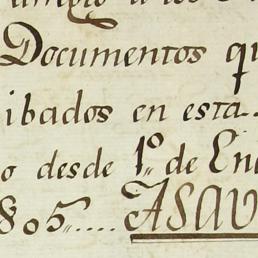 a los
Documentos qu
ibados en esta..
o desde 1º de Ene
805.... ASAV